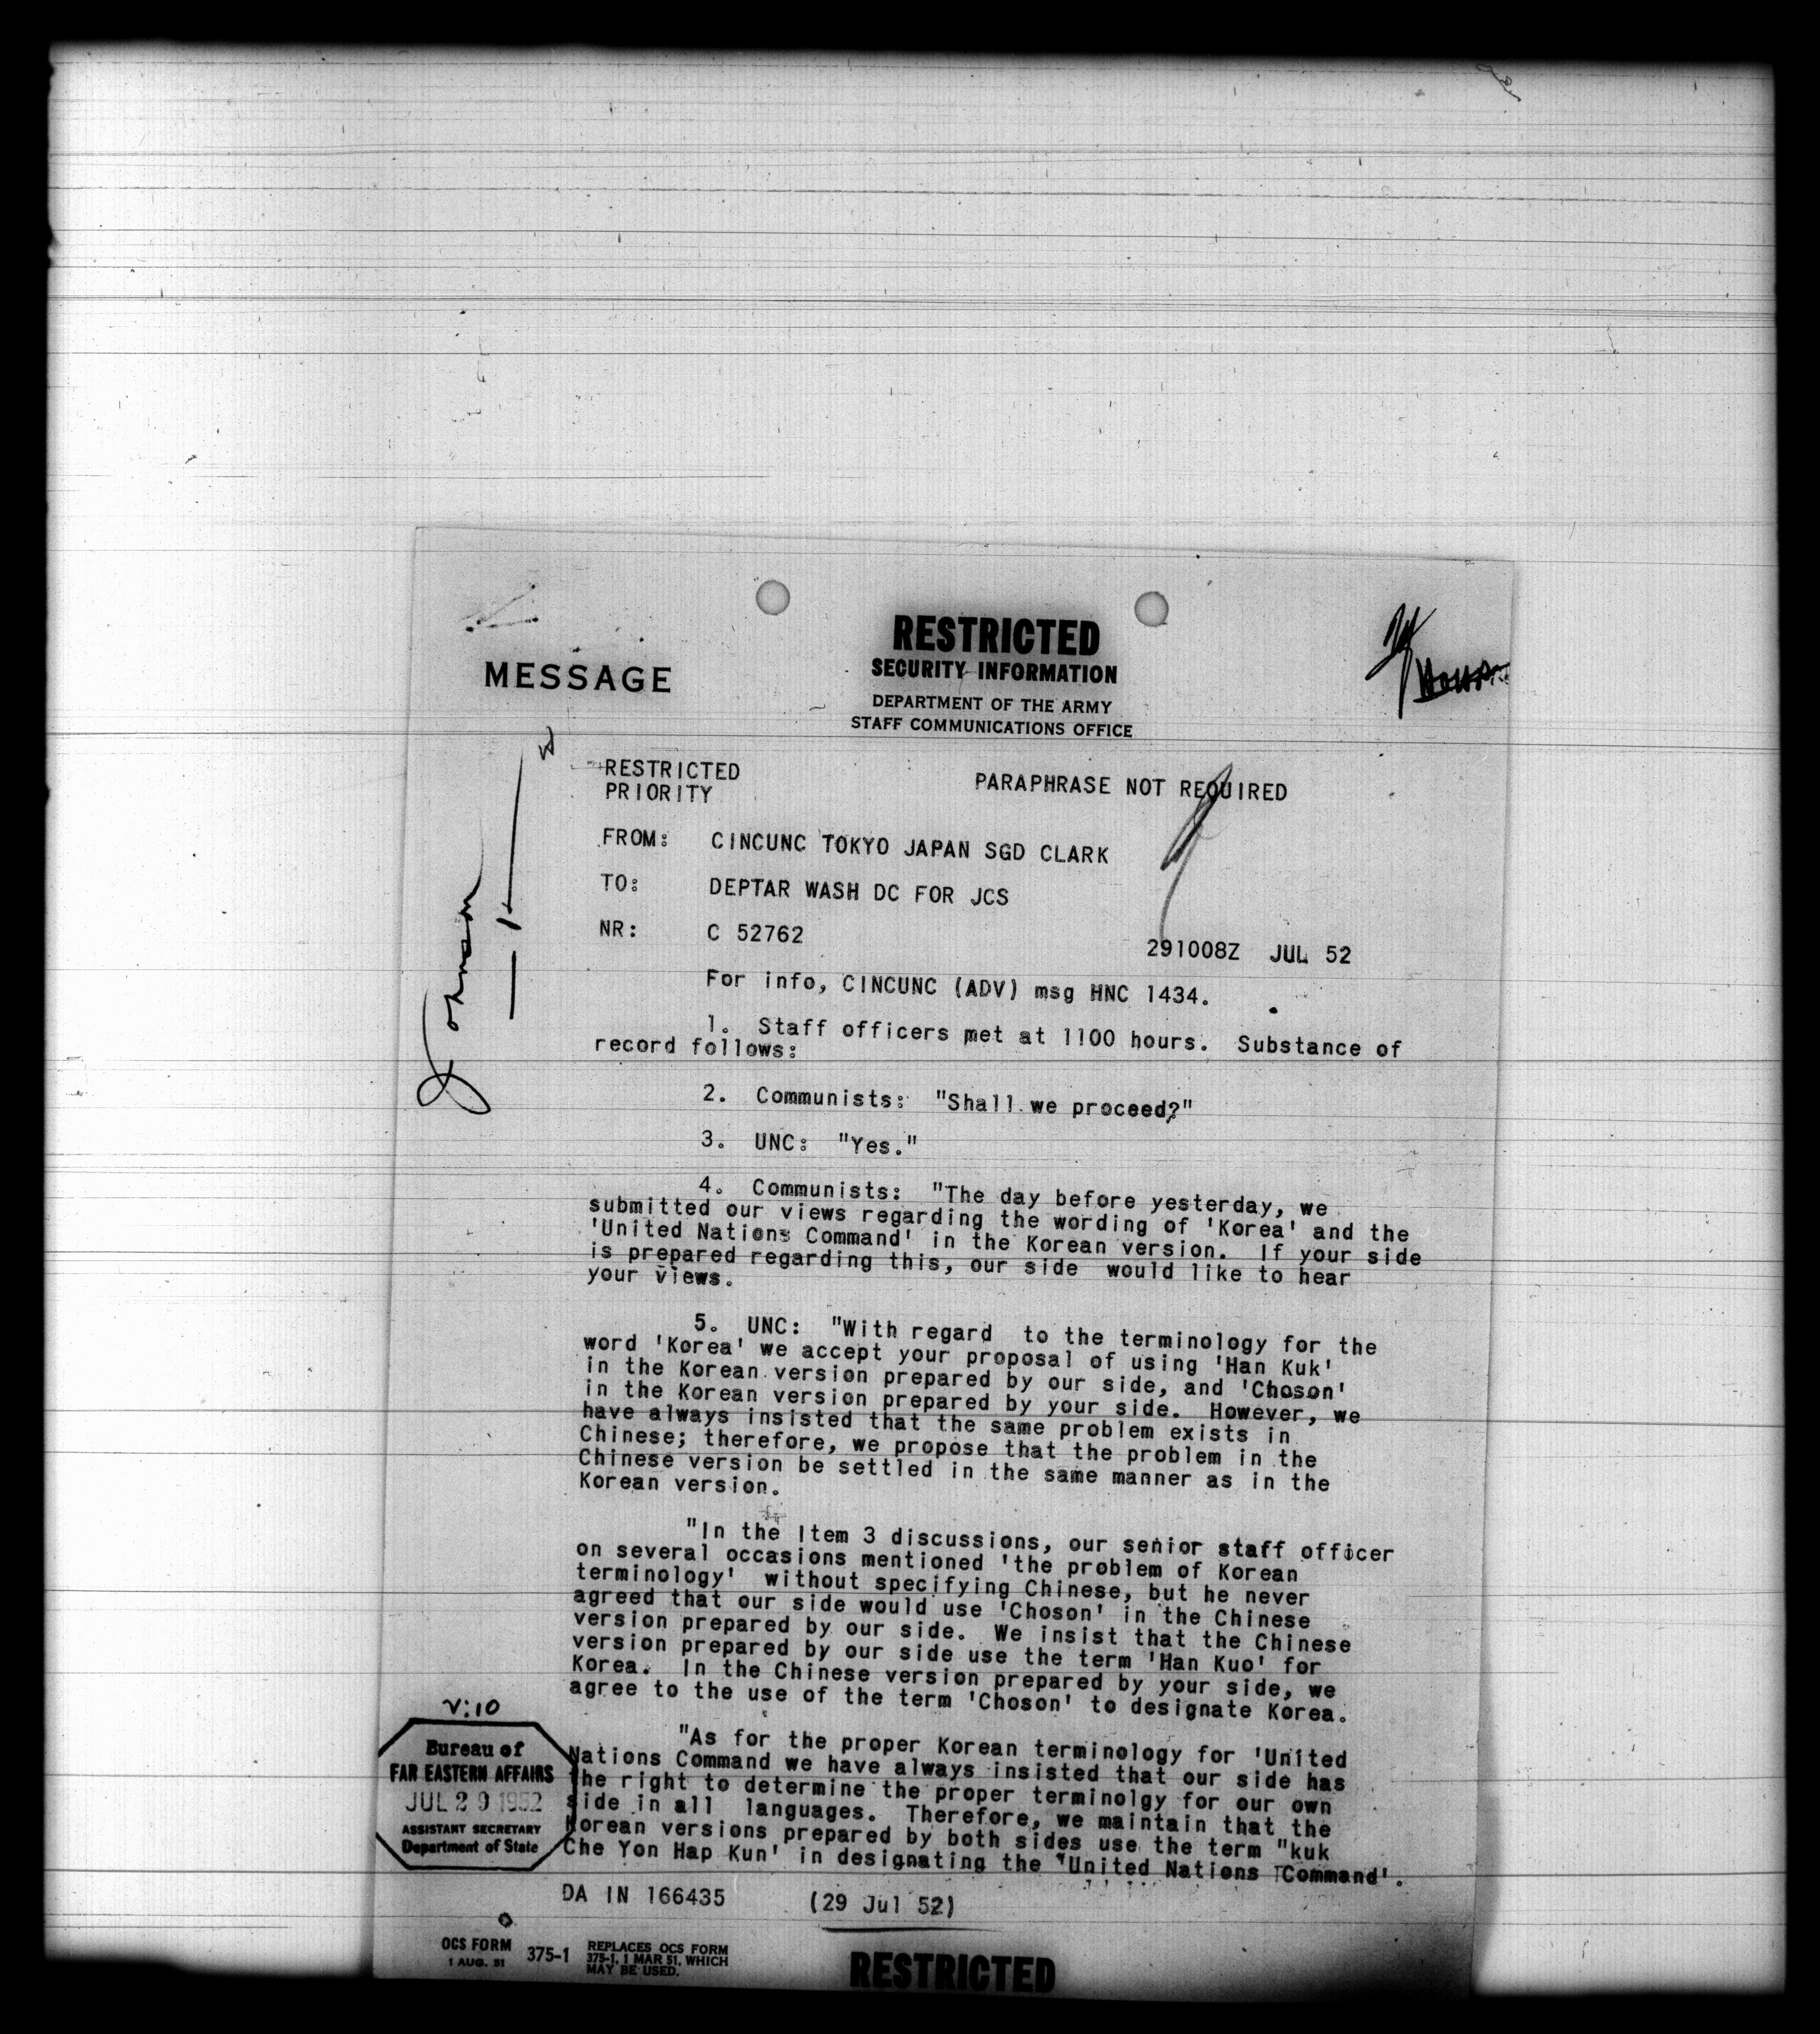 RESTRICTED
SECURITY INFORMATION
MESSAGE
DEPARTMENT OF THE ARMY
STAFF COMMUNICATIONS OFFICE
RESTRICTED
PARAPHRASE NOT REQUIRED
PRIORITY
FROM: CINCUNC TOKYO JAPAN SGD CLARK
TO: DEPTAR WASH DC FOR JCS
NR: C 52762
291008Z JUL 52
Johnson
For info, CINCUNC (ADV) msg HNC 1434.
1. Staff officers met at 1100 hours. Substance of
record follows:
2. Communists: "Shall we proceed?"
3. UNC: "Yes."
4. Communists: "The day before yesterday, we
submitted our views regarding the wording of 'Korea' and the
'United Nations Command' in the Korean version. If your side
is prepared regarding this, our side would like to hear
your views.
5. UNC: "With regard to the terminology for the
word 'Korea' we accept your proposal of using 'Han Kuk'
in the Korean version prepared by our side, and 'Choson'
in the Korean version prepared by your side. However, we
have always insisted that the same problem exists in
Chinese; therefore, we propose that the problem in the
Chinese version be settled in the same manner as in the
Korean version.
"In the Item 3 discussions, our senior staff officer
on several occasions mentioned 'the problem of Korean
terminology' without specifying Chinese, but he never
agreed that our side would use 'Choson' in the Chinese
version prepared by our side. We insist that the Chinese
version prepared by our side use the term 'Han Kuo' for
Korea. In the Chinese version prepared by your side, we
agree to the use of the term 'Choson' to designate Korea.
"As for the proper Korean terminology for 'United
Nations Command we have always insisted that our side has
the right to determine the proper terminolgy for our own
side in all languages. Therefore, we maintain that the
Korean versions prepared by both sides use the term "kuk
Che Yon Hap Kun' in designating the 'United Nations Command'.
V:10
Bureau of
FAR EASTERN AFFAIRS
JUL 29 1952
ASSISTANT SECRETARY
Department of State
DA IN 166435 (29 Jul 52)
OCS FORM
1 AUG. 51
375-1
REPLACES OCS FORM
375-1, 1 MAR 51, WHICH
MAY BE USED.
RESTRICTED